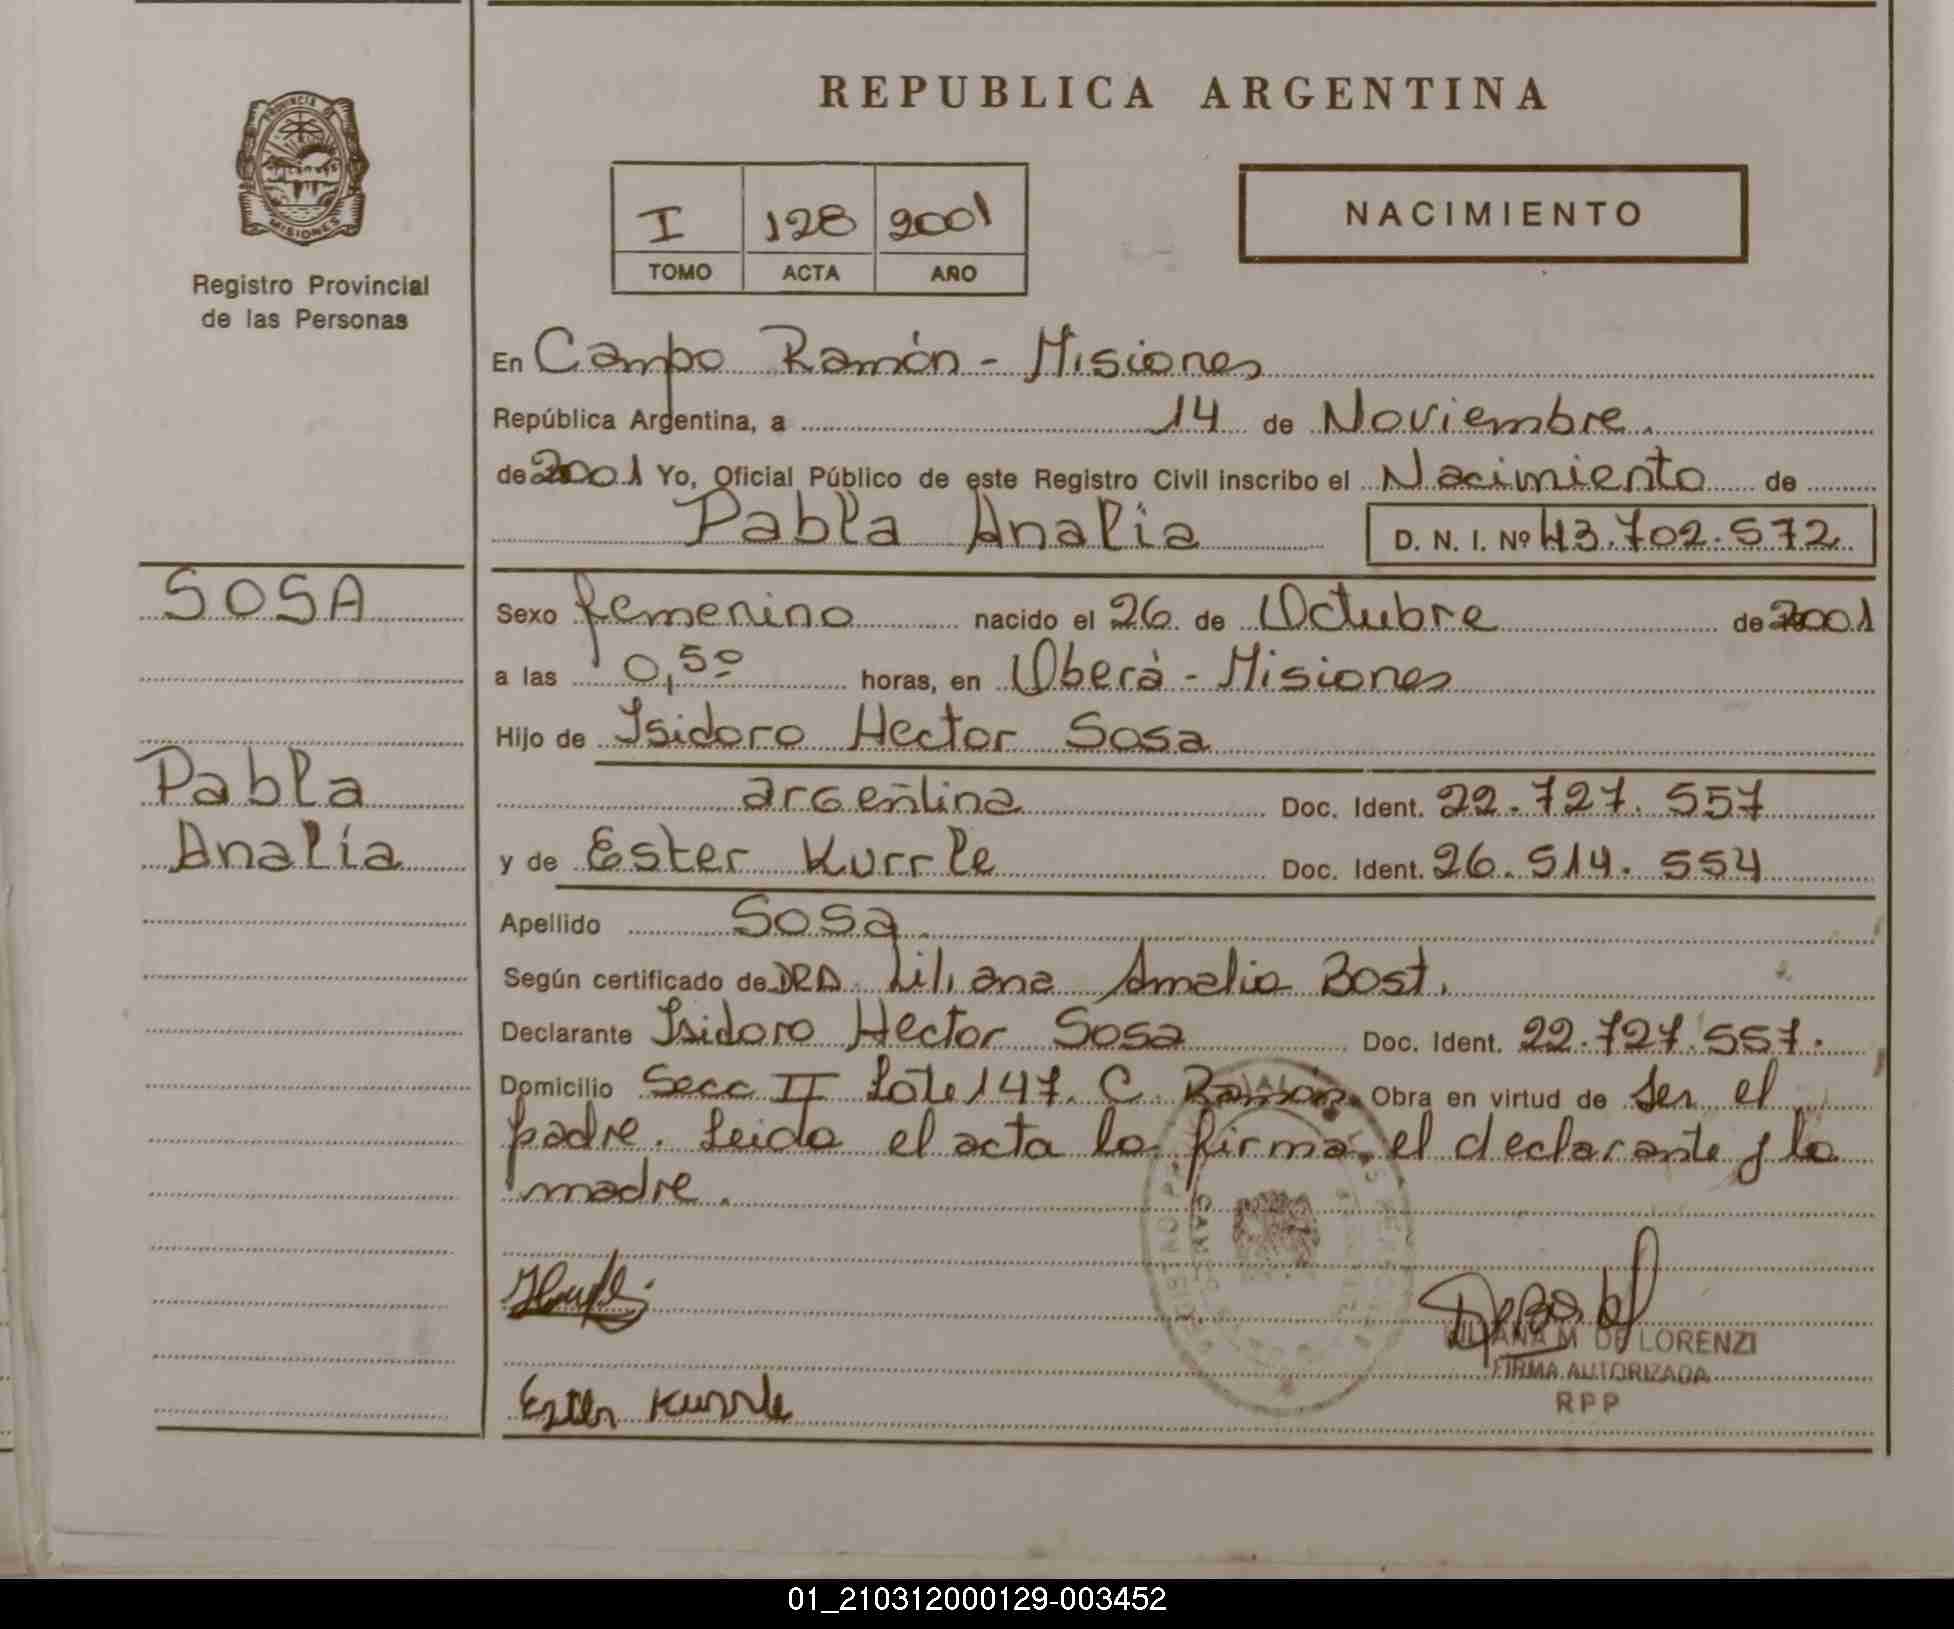 REPUBLICA ARGENTINA
PROVINCIA DE
MISIONES
Registro Provincial
de las Personas
I 128 2001
TOMO ACTA AÑO
NACIMIENTO
En Campo Ramón - Misiones
República Argentina, a 14 de Noviembre.
de 2001 Yo, Oficial Público de este Registro Civil inscribo el Nacimiento de
Pabla Analia D. N. I. Nº 43.702.572
SOSA
Pabla
Analía
Sexo femenino nacido el 26 de Octubre de 2001
a las 0,50 horas, en Oberá - Misiones
Hijo de Isidoro Hector Sosa
argentina Doc. Ident. 22.727.557
y de Ester Kurrle Doc. Ident. 26.514.554
Apellido Sosa.
Según certificado de DRA Liliana Amalia Bost.
Declarante Isidoro Hector Sosa Doc. Ident. 22.727.557.
Domicilio Secc II Lote 147. C. Ramón. Obra en virtud de ser el
padre. Leida el acta la firma, el declarante y la
madre.
Ester Kurrle
LILIANA M DE LORENZI
FIRMA AUTORIZADA
RPP
01_210312000129-003452